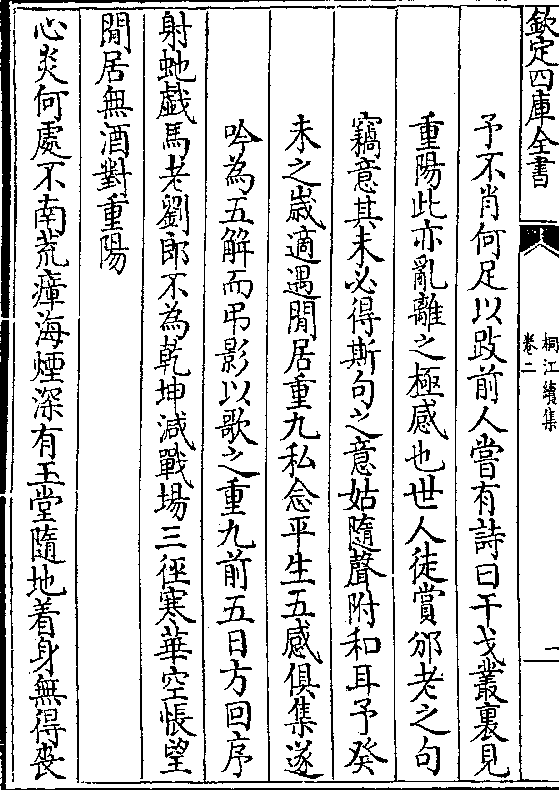 欽定四庫全書
桐江續集
卷二
一
予不肖何足以跂前人嘗有詩曰干戈叢裏見
重陽此亦亂離之極感也世人徒賞邠老之句
竊意其未必得斯句之意姑隨聲附和耳予癸
未之歲適遇閒居重九私念平生五感俱集遂
吟為五解而弔影以歌之重九前五日方回序
射虵戲馬老劉郎不為乾坤減戰場三徑寒華空悵望
閒居無酒對重陽
心炎何處不南荒瘴海煙深有玉堂隨地着身無得喪